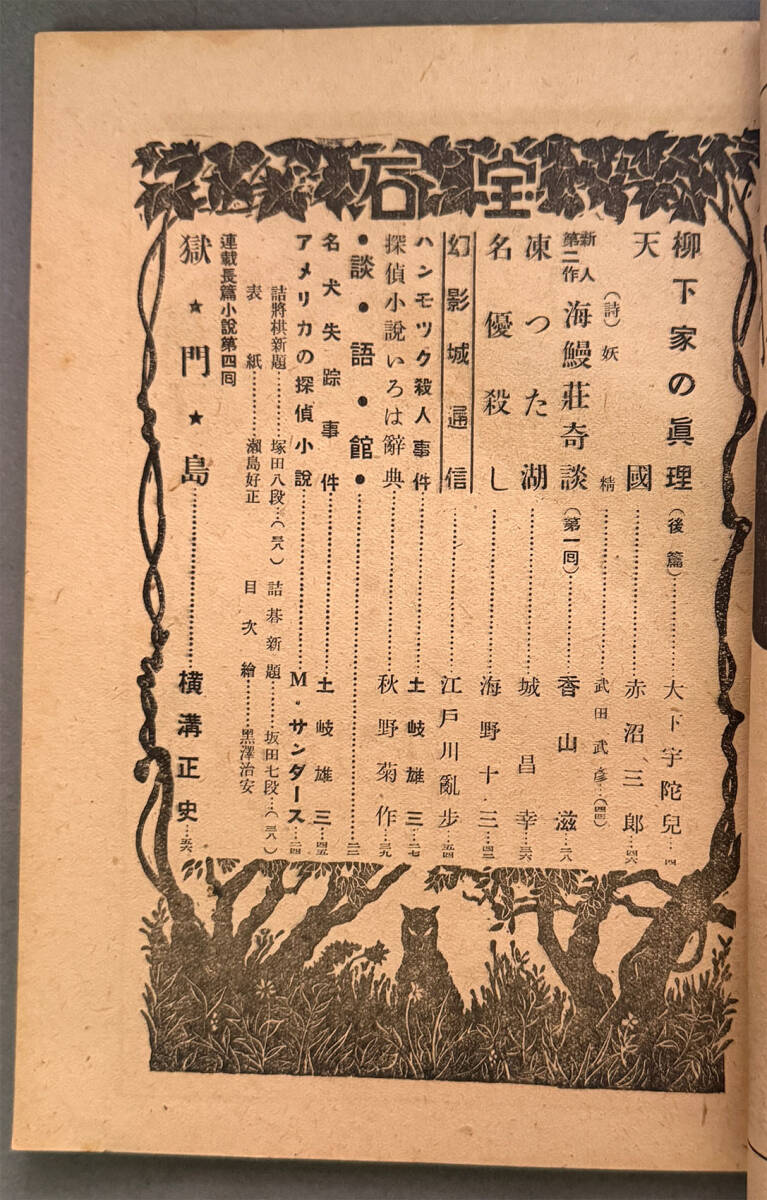 宝石
柳下家の眞理（後篇）…………大下宇陀兒…四
天國…………赤沼三郎…四六
（詩）妖精…………武田武彥…（四四）
新人第二作 海鰻莊奇談（第一囘）…………香山滋…二八
凍つた湖…………城昌幸…三六
名優殺し…………海野十三…四二
幻影城通信…………江戸川亂步…五四
ハンモツク殺人事件…………土岐雄三…二七
探偵小說いろは辭典…………秋野菊作…三九
・談・語・館・…………二二
名犬失踪事件…………土岐雄三…四五
アメリカの探偵小說…………M・サンダース…二四
詰將棋新題…………塚田八段…（三八）
詰碁新題…………坂田七段…（三八）
表紙…………瀨島好正
目次繪…………黑澤治安
連載長篇小說第四囘
獄★門★島…………橫溝正史…五六